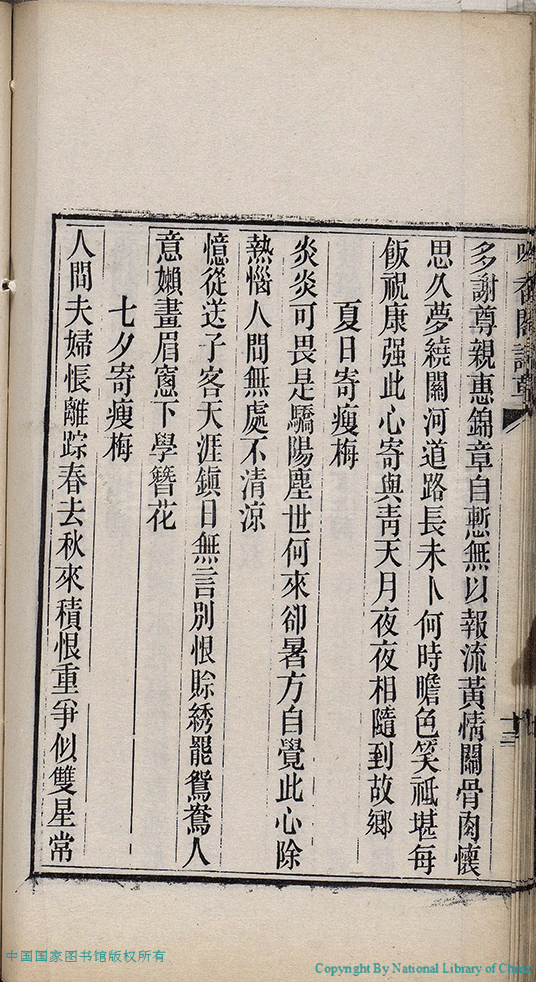 多謝尊親惠錦章自慙無以報流黃情關骨肉懷
思久夢繞關河道路長未卜何時瞻色笑祗堪每
飯祝康强此心寄與靑天月夜夜相隨到故鄉
夏日寄瘦梅
炎炎可畏是驕陽塵世何來卻暑方自覺此心除
熱惱人間無處不清涼
憶從送子客天涯鎭日無言別恨賒綉罷鴛鴦人
意嬾畫眉窻下學簪花
七夕寄瘦梅
人間夫婦悵離踪春去秋來積恨重爭似雙星常
中国国家图书馆版权所有
Copyright By National Library of China